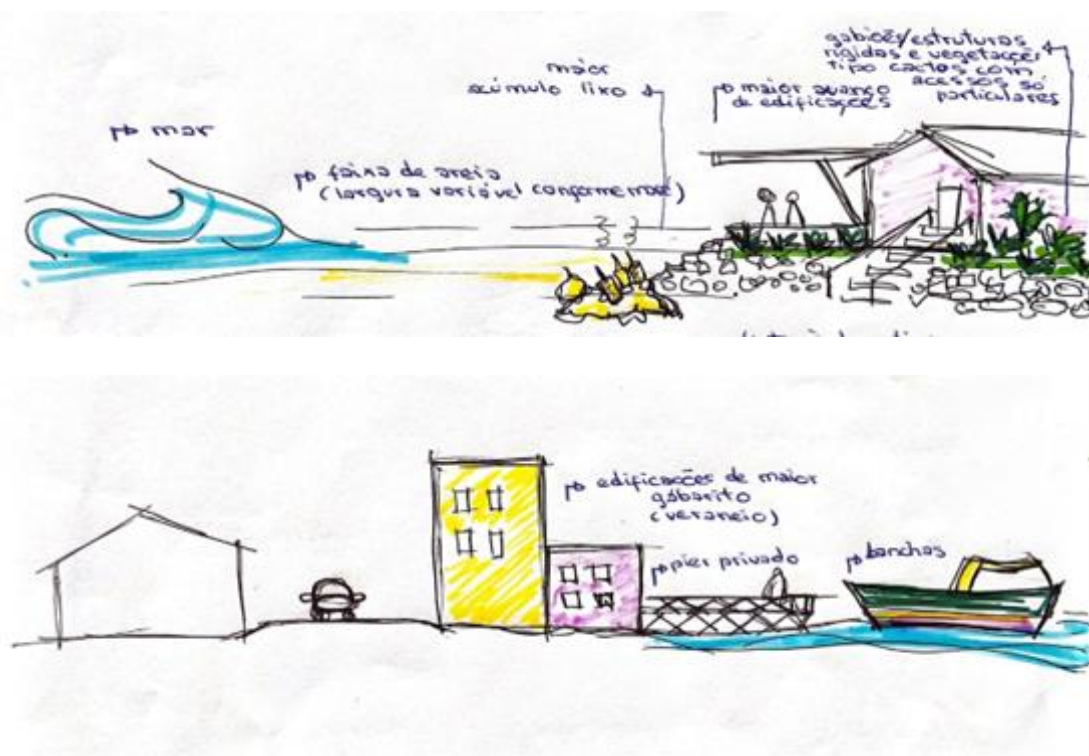 mar
faixa de areia
(largura variável conforme maré)
maior
acúmulo lixo
maior avanço
de edificações
gabiões/estruturas
rígidas e vegetação
tipo cactos com
acessos só
particulares
edificações de maior
gabarito
(veraneio)
pier privado
lanchas